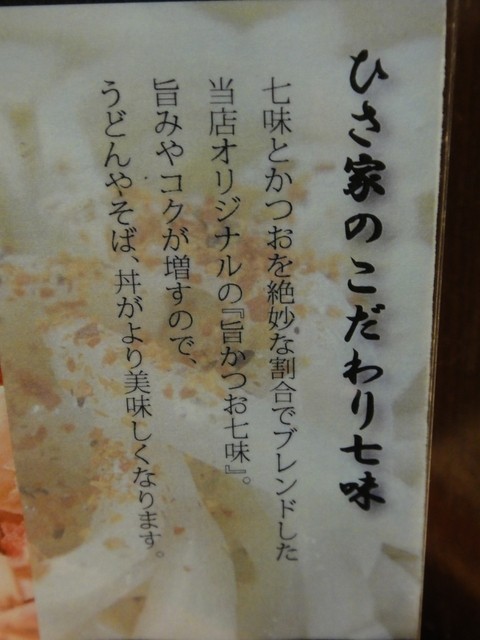 ひさ家のこだわり七味
七味とかつおを絶妙な割合でブレンドした
当店オリジナルの『旨かつお七味』。
旨みやコクが増すので、
うどんやそば、丼がより美味しくなります。